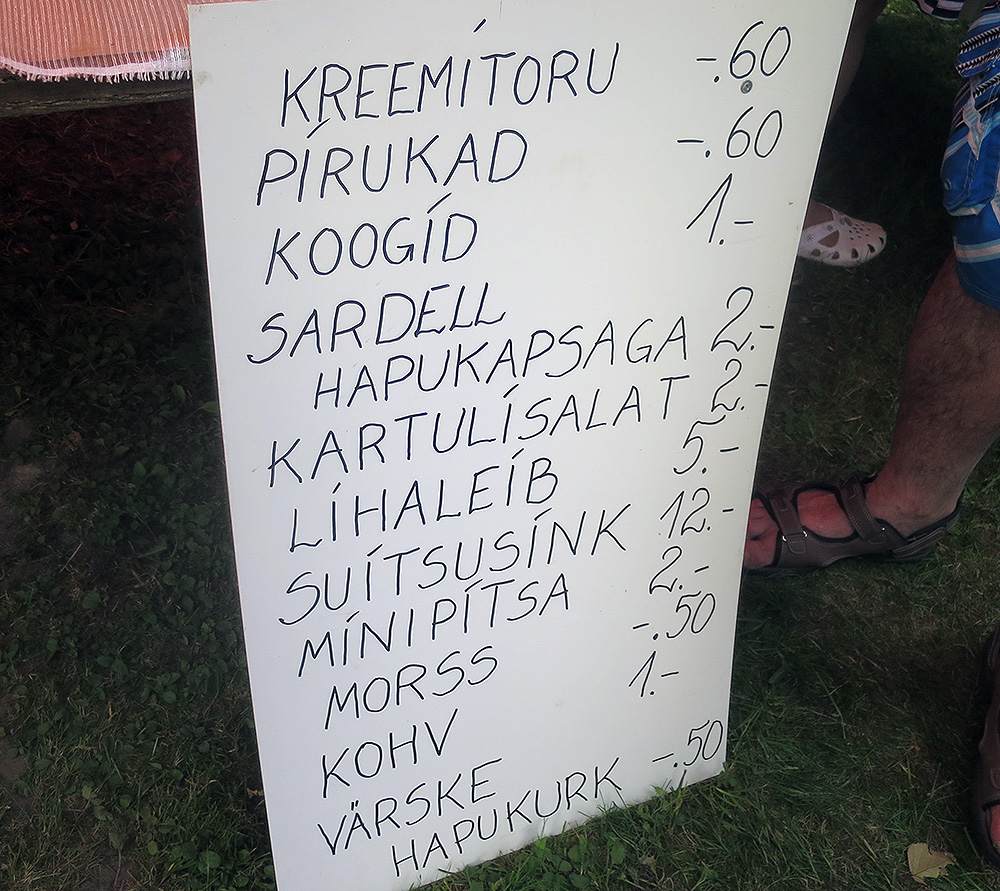 KREEMITORU -.60
PIRUKAD -.60
KOOGID 1.-
SARDELL
HAPUKAPSAGA 2.-
KARTULISALAT 2.-
LIHALEIB 5.-
SUITSUSINK 12.-
MINIPITSA 2.-
MORSS -.50
KOHV 1.-
VÄRSKE
HAPUKURK -.50